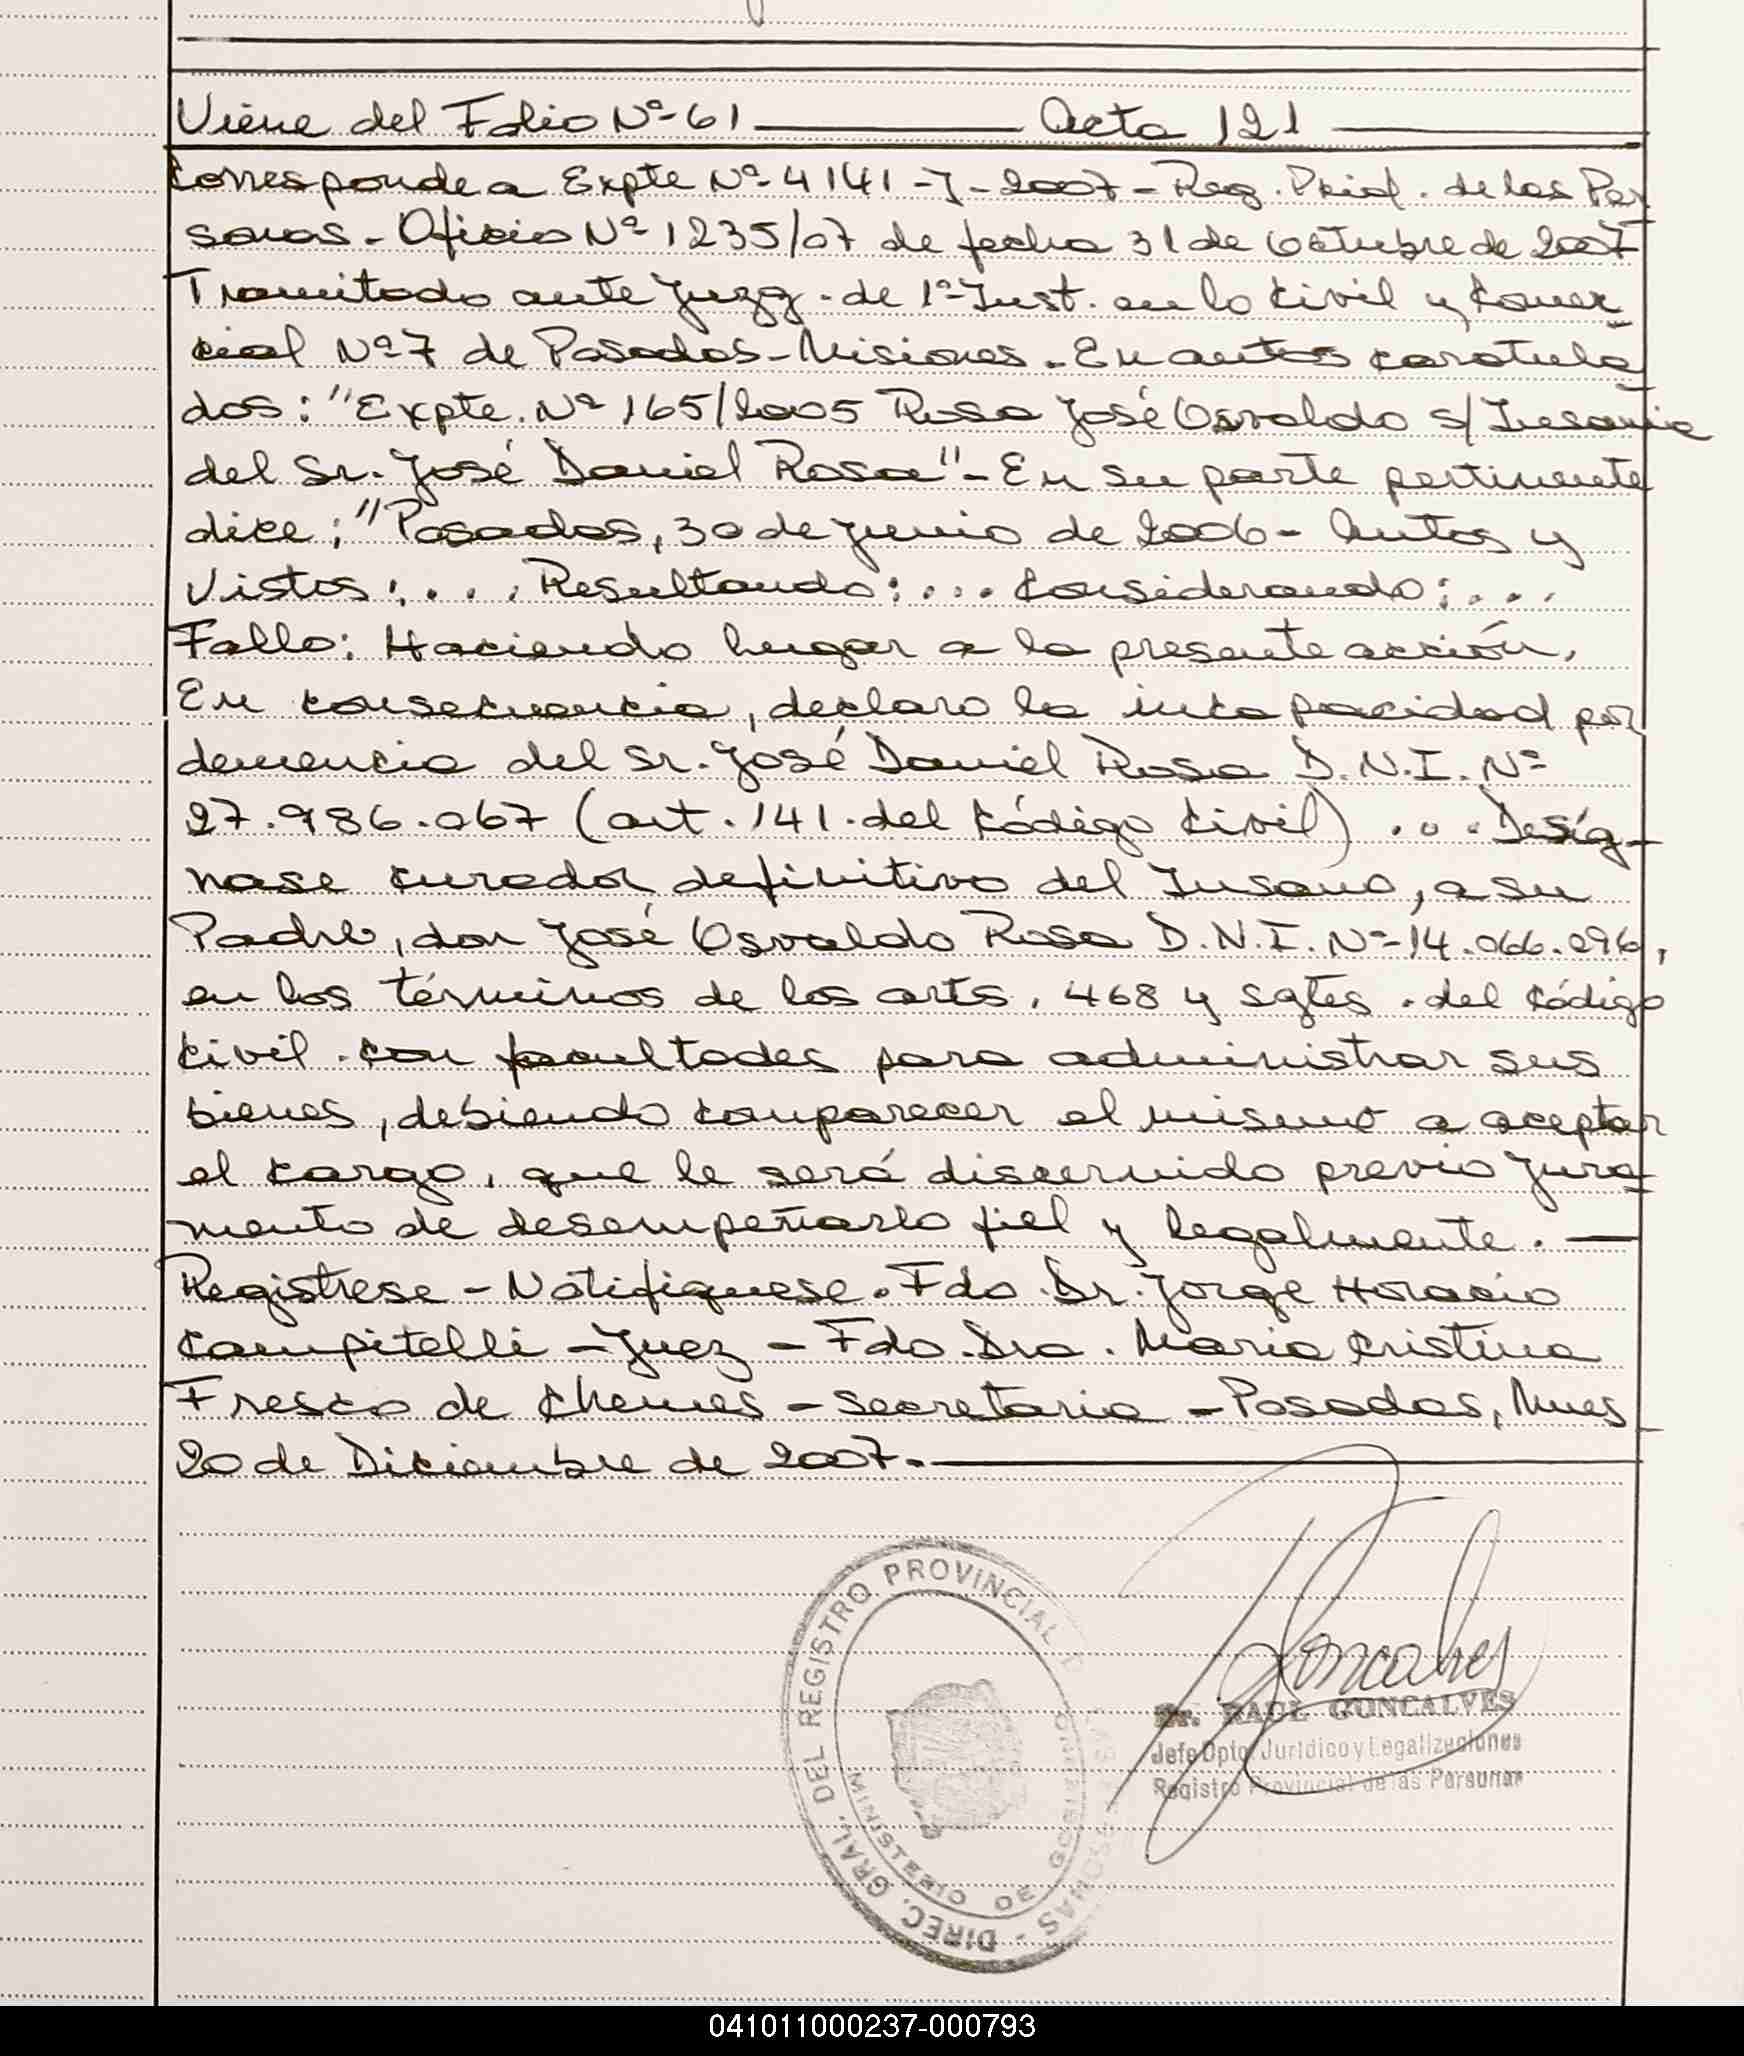 Viene del Folio Nº 61 Acta 121
Corresponde a Expte Nº 4141-J-2007 - Reg. Prial. de las Per
sonas. Oficio Nº 1235/07 de fecha 31 de Octubre de 2007
Tramitado ante Juzg. de 1ª Inst. en lo Civil y Comer
cial Nº 7 de Posadas - Misiones. En autos caratula
dos: "Expte. Nº 165/2005 Rosa José Osvaldo s/ Insania
del Sr. José Daniel Rosa" - En su parte pertinente
dice: "Posadas, 30 de Junio de 2006 - Autos y
Vistos: ... Resultando: ... Considerando: ...
Fallo: Haciendo lugar a la presente acción.
En consecuencia, declaro la incapacidad por
demencia del Sr. José Daniel Rosa D.N.I. Nº
27.986.067 (art. 141. del Código Civil) ... Desíg-
nase curador definitivo del Insano, a su
Padre, don José Osvaldo Rosa D.N.I. Nº 14.066.096,
en los términos de los arts. 468 y sgtes. del Código
Civil. con facultades para administrar sus
bienes, debiendo comparecer el mismo a aceptar
el cargo, que le será discernido previo Jura
mento de desempeñarlo fiel y legalmente. —
Registrese - Notifiquese. Fdo. Dr. Jorge Horacio
Campitelli - Juez - Fdo. Dra. Maria Cristina
Fresco de Chemes - Secretaria - Posadas, Mnes
20 de Diciembre de 2007. —
DIREC. GRAL. DEL REGISTRO PROVINCIAL DE LAS PERSONAS
MINISTERIO DE GOBIERNO
Goncalves
Dr. RAUL GONCALVES
Jefe Dpto. Jurídico y Legalizaciones
Registro Provincial de las Personas
041011000237-000793